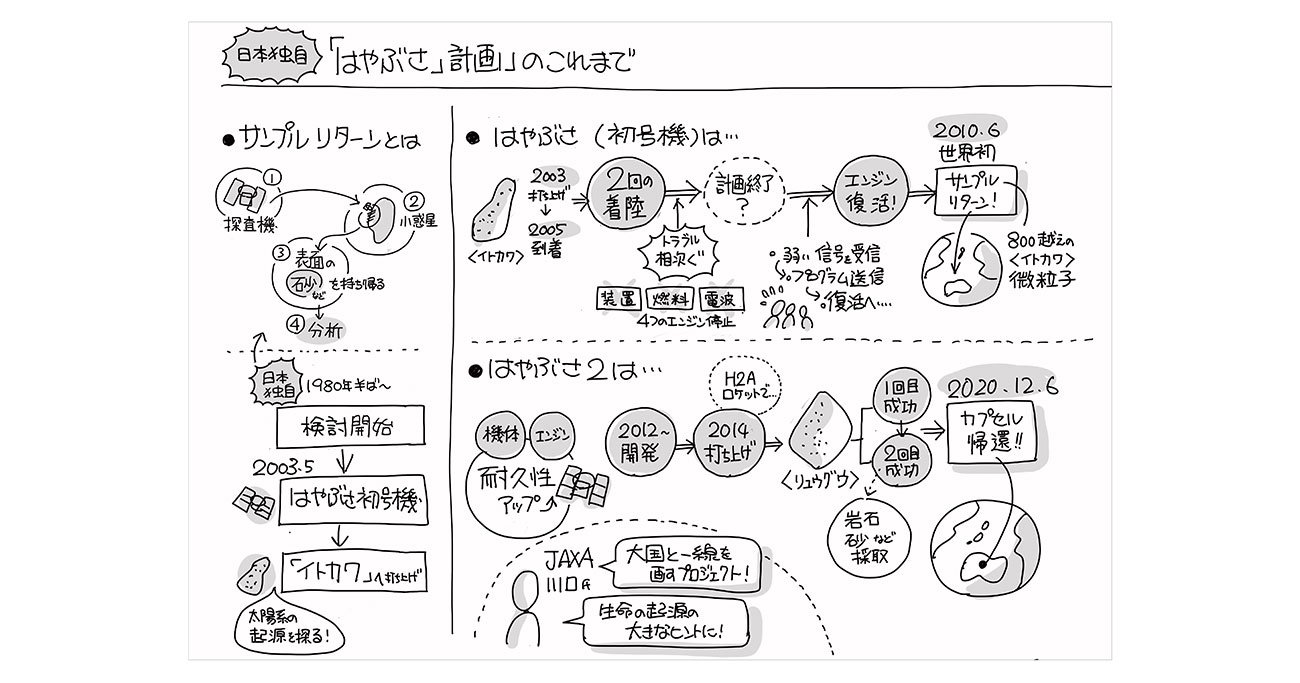 日本独自
「はやぶさ」計画」のこれまで
●サンプルリターンとは
①
探査機
②
小惑星
③
表面の
砂など
を持ち帰る
④分析
日本
独自
1980年半ば~
検討開始
2003.5
はやぶさ初号機
「イトカワ」へ打ち上げ
太陽系の
起源を探る!
●はやぶさ(初号機)は…
<イトカワ>
2003
打ち上げ
2005
到着
2回の
着陸
トラブル
相次ぐ
装置
燃料
電波
4つのエンジン停止
計画終了
?
弱い信号を受信
プログラム送信
復活へ‥‥
エンジン
復活!
2010.6
世界初
サンプル
リターン!
800越えの
<イトカワ>
微粒子
●はやぶさ2は…
機体
エンジン
耐久性
アップ
2012~
開発
H2A
ロケットで…
2014
打ち上げ
<リュウグウ>
1回目
成功
2回目
成功
岩石
砂など
採取
2020.12.6
カプセル
帰還!!
JAXA
川口氏
大国と一線を
画すプロジェクト!
生命の起源の
大きなヒントに!